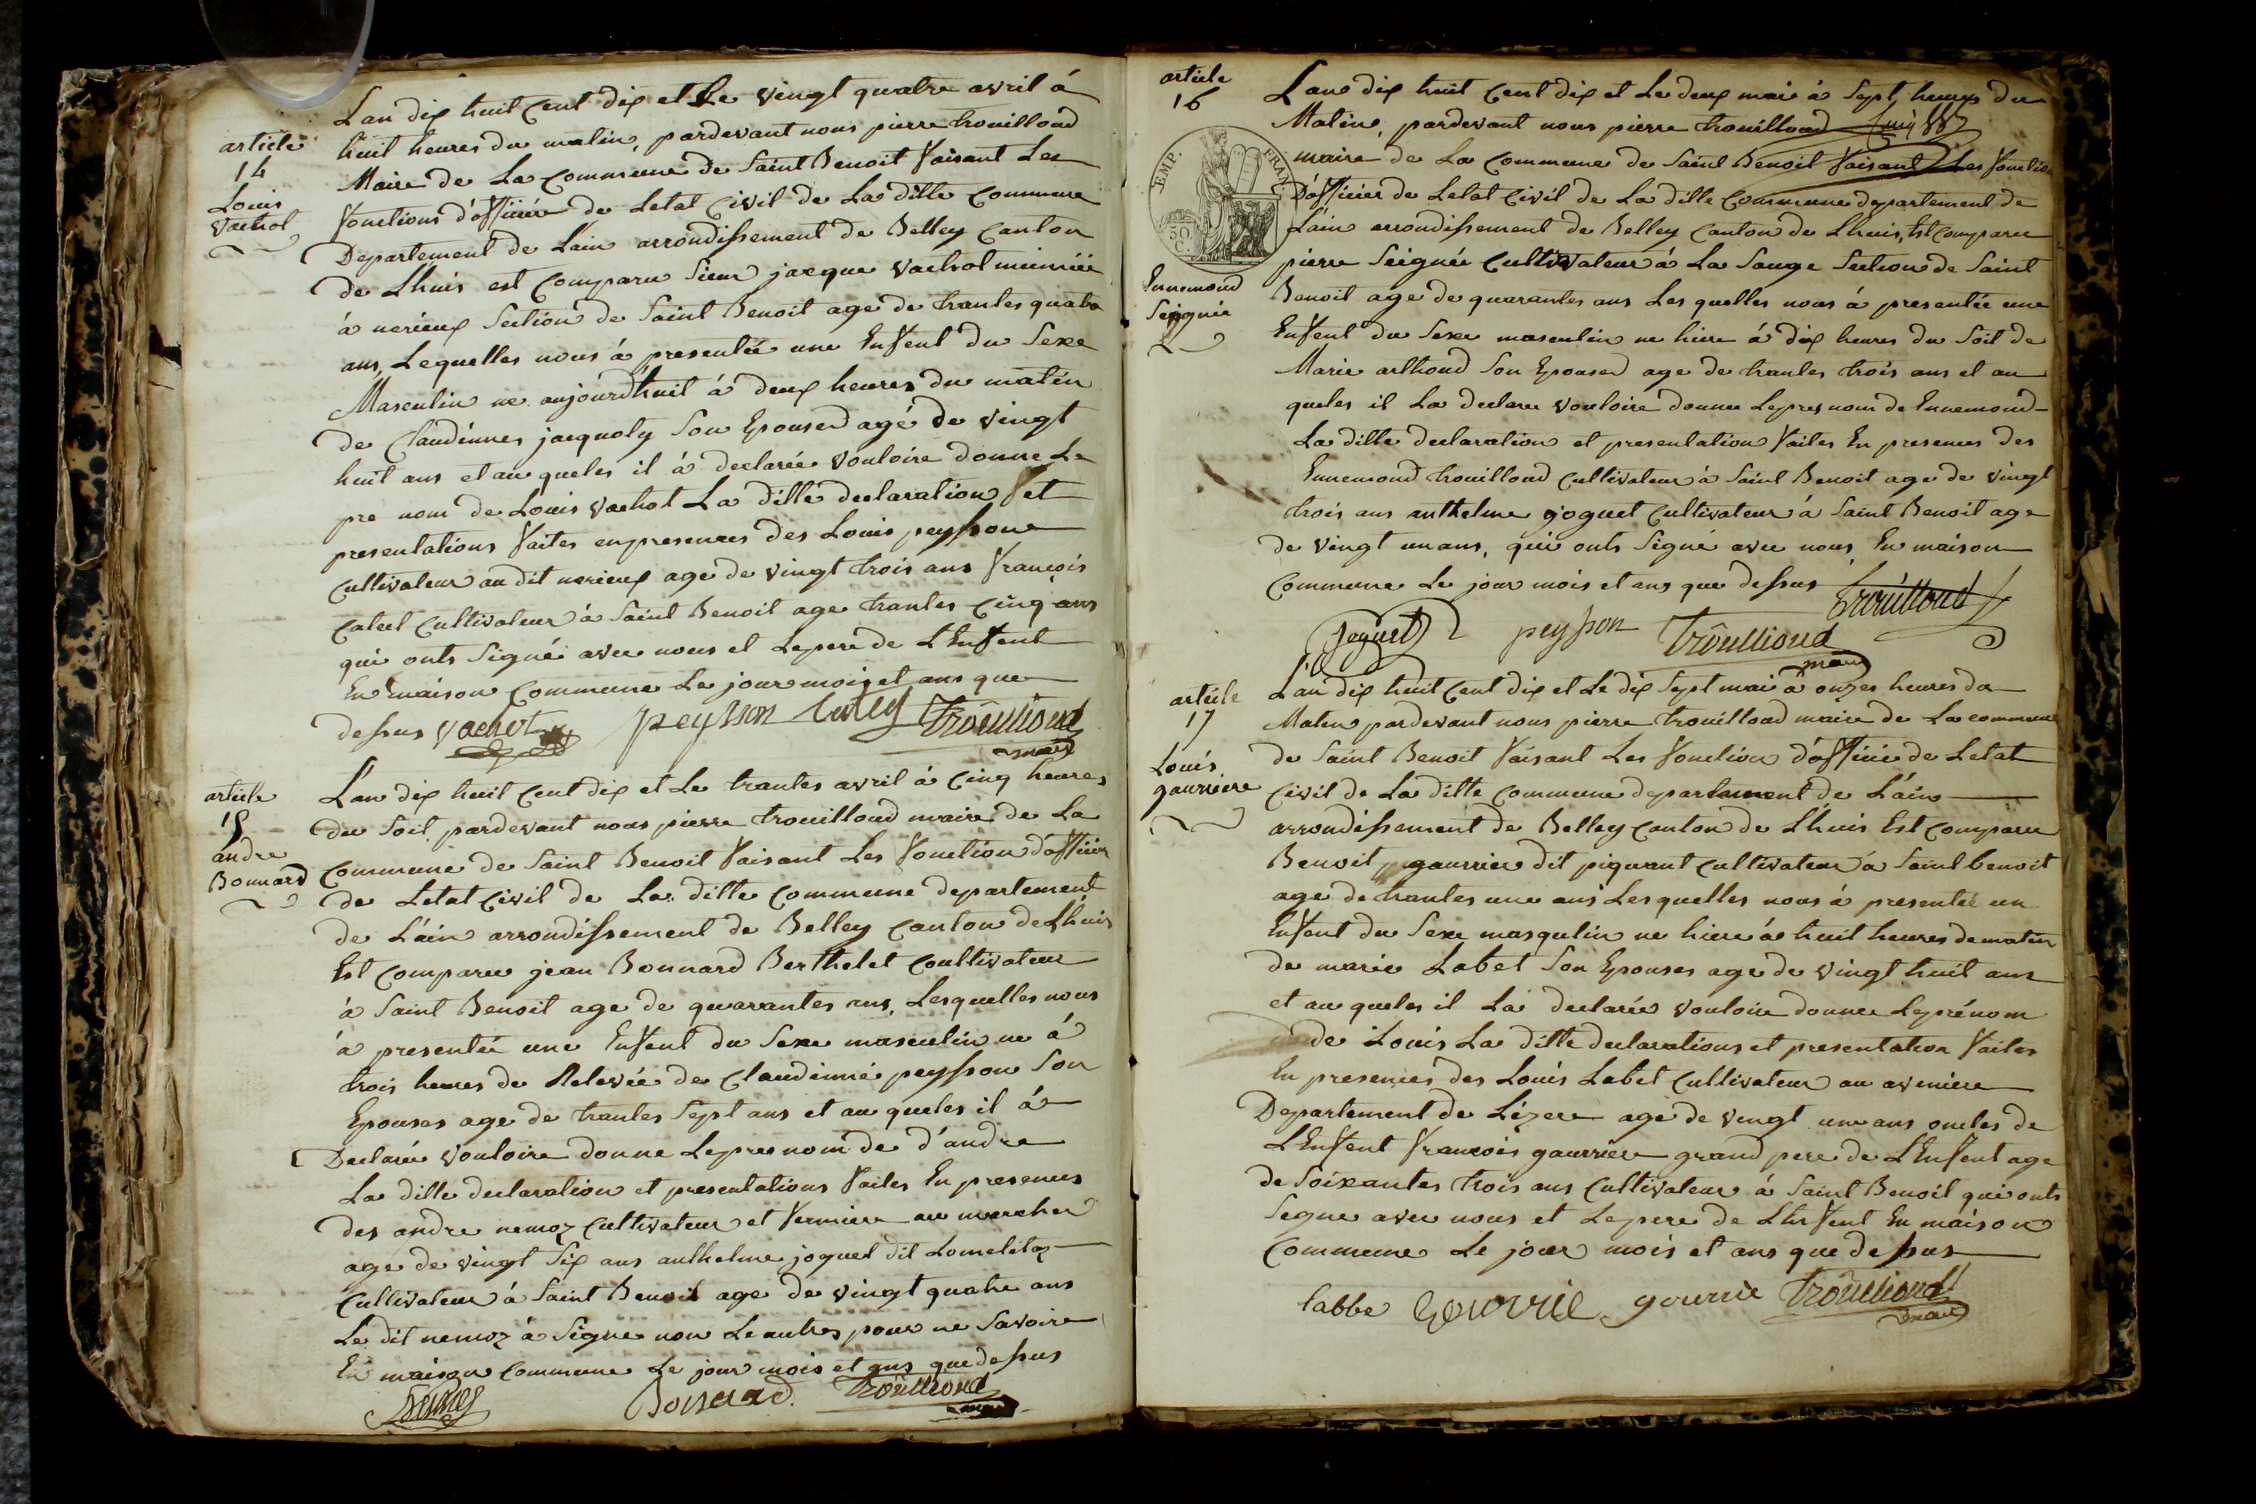 article
14
Louis
Vachot
L'an dix huit Cent dix et Le vingt quatre avril á
huit heures du matin, pardevant nous pierre trouilloud
Maire de La Commune de Saint Benoit faisant Les
fonctions d'officiér de Letat Civil de La ditte Commune
Departement de Lain arrondissement de Belley Canton
de Lhuis est Comparu Sieur jacque Vachot
á nerieux Section de Saint Benoit age de trantes quatre
ans, Lequelles nous á presentée une Enfent du Sexe
Masculin ne aujourdhuit á deux heures du matin
de Claudinnes jacquoty Son Epouse agé de vingt
huit ans et au queles il á declarée vouloire donne Le
pre nom de Louis Vachot La ditte declaration et
presentations faites enpresences des Louis peysson
Cultivateur au dit nerieux age de vingt trois ans françois
Cultivateur á Saint Benoit age trantes Cinq ans
qui onts Signé avec nous et Lepere de L'Enfent
En maison Commune Le jour mois et ans que
dessus vachot peysson trouilloud
maire
article
15
andre
Bonnard
L'an dix huit Cent dix et Le trantes avril á Cinq heures
du Soit pardevant nous pierre trouilloud maire de La
Commune de Saint Benoit faisant Les fonction d'officier
de Letat Civil de La ditte Commune departement
de L'ain arrondissement de Belley Canton de Lhuis
Est Comparu jean Bonnard Berthelet Coultivateur
á Saint Benoit age de quarantes ans, Lesquelles nous
á presentée une Enfent du Sexe masculin ne á
trois heures de Relevée de Claudinne peysson Son
Epouses age de trantes Sept ans et au queles il á
Declarée vouloire donne Lepresnom de d'andre
La ditte declaration et presentations faites En presences
des andre nemoz Cultivateur et fermiere au marcher
age de vingt Six ans anthelme joguet dit
Cultivateur á Saint Benoit age de vingt quatre ans
Le dit nemoz á Signe non Le autres pour ne Savoire
En maison Commune Le jour mois et ans que dessus
Bonnard trouilloud
maire
article
16
Ennemond
Seignée
EMP. FRAN.
L'an dix huit Cent dix et Le deux mai á Sept heures du
Matin, pardevant nous pierre trouilloud
maire de La Commune de Saint Benoit faisant Les fonction
D'officier de Letat Civil de La ditte Commune departement de
L'ain arrondissement de Belley Canton de Lhuis, Est Comparu
pierre Seignée Cultivateur á La Sauge Section de Saint
Benoit age de quarantes ans Les quelles nous á presentée une
Enfent du Sexe masculin ne hiere á dix heures du Soit de
Marie arthoud Son Epouse age de trantes trois ans et au
queles il La declaree vouloire donner Lepresnom de Ennemond
La ditte declaration et presentation faites En presences des
Ennemond trouilloud Cultivateur á Saint Benoit age de vingt
trois ans anthelme joguet Cultivateur á Saint Benoit age
de vingt un ans, qui onts Signé avec nous En maison
Commune Le jour mois et ans que dessus trouilloud
Joguet peysson trouilloud
maire
article
17
Louis
gaurriere
L'an dix huit Cent dix et Le dix Sept mai á onzes heures du
Matin pardevant nous pierre trouilloud maire de La commune
de Saint Benoit faisant Les fonction d'officié de Letat
Civil de La ditte Commune departement de L'ain
arrondissement de Belley Canton de Lhuis Est Comparu
Benoit gaurrier dit piquant Cultivateur á Saint benoit
age de trantes une ans Lesquelles nous á presentée un
Enfent du Sexe masqulin ne hiere á huit heures de matin
de marie Labet Son Epouses age de vingt huit ans
et au queles il La declarée vouloire donner Leprénom
de Louis La ditte declarations et presentation faites
En presences des Louis Labet Cultivateur au aveniere
Departement de Lizere age de vingt une ans oncles de
L'Enfent françois gaurriere grand pere de L'Enfent age
de Soixantes trois ans Cultivateur á Saint Benoit qui onts
Signe avec nous et Lepere de L'Enfent En maison
Commune Le jour mois et ans que dessus
labbe Gourrié gourrie trouilloud
maire